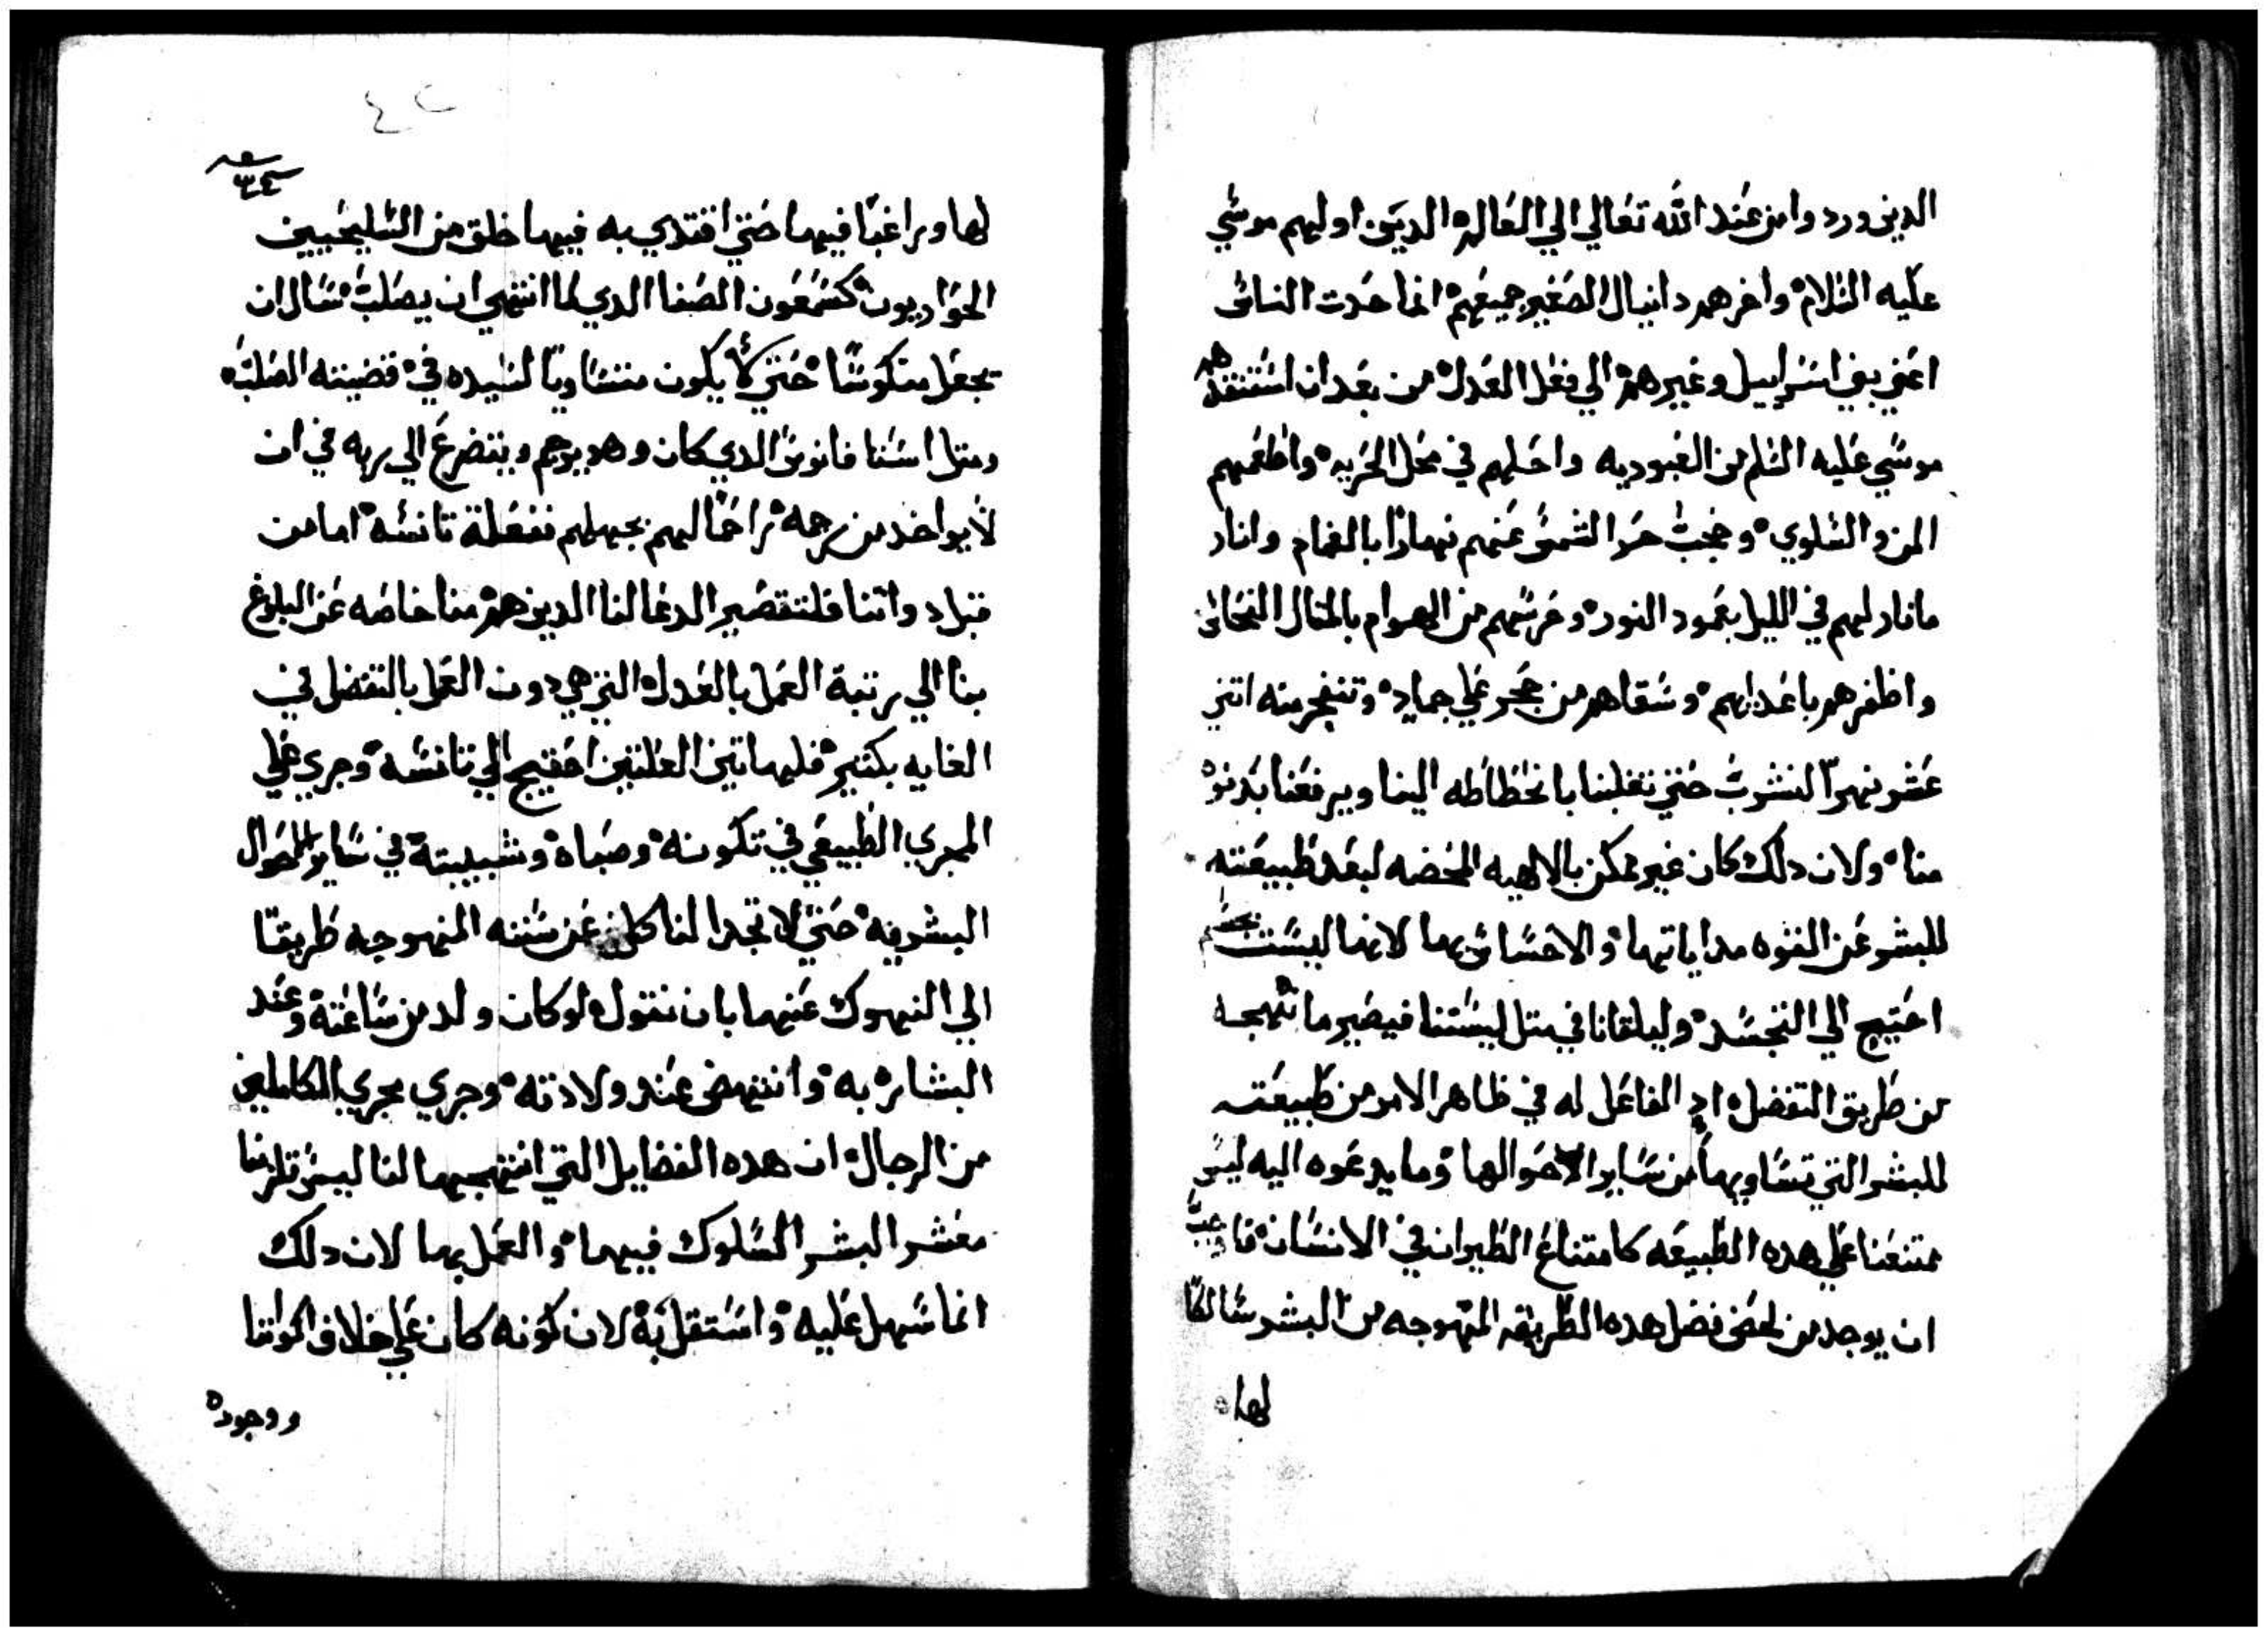 الدين وردوا من عند الله تعالي الي العالم الدين اولهم موسي
عليه السلام واخرهم دانيال الصغير جميعهم انما حدت الناس
اعني بني اسراييل وغيرهم الي فعل العدل من بعد ان استنقدهم
موسي عليه السلم من العبوديه واحلهم في محل الحريه واطعمهم
المن والسلوي وحجب حر الشمس عنهم نهارا بالغمام وانار
ما نار لهم في الليل بعمود النور وحرسهم من الهوام بالمتال النحاس
واظفرهم باعدايهم وسقاهم من حجر علي جماد وتنفجر منه اتني
عشر نهرا لنشرب حتي نقلبنا بانحطاطه الينا ويرفعنا بدنوه
منا ولان دلك كان غير ممكن بالالاهيه المحضه لبعد طبيعته
للبشر عن التوه مداياتها والاحساس بها لانها ليست بجسم
احتيج الي التجسد وليلقانا في متل لبستنا فيصير ما نهجه
من طريق التفضل اد الفاعل له في ظاهر الامر من طبيعته
للبشر التي تساويها من ساير الاحوالها وما يدعوه اليه ليس
ممتنعنا علي هده الطبيعه كامتناع الطيران في الانسان فاحب
ان يوجد من لحض فضل هده الطريقه المنهوجه من البشر سالكا
لها
٤٢
لها وراغبا فيها حتي اقتدي به فيها خلق من السليحيين
الحواريون كسمعون الصفا الدي لما انتهي ان يصلب سال ان
يجعل منكوسا حتي لا يكون متساويا لسيده في قضيته الصلب
ومتل اسطفانوس الدي كان وهو يرجم ويتضرع الي ربه في ان
لا يواخد من رجمه تراحما ليهم بجهلهم نفعلة تانسه اما من
قبل دواتنا فلتقصير الدعا لنا الدين هم منا خاصه عن البلوغ
بنا الي رتبة العمل بالعدل التي هي دون العمل بالتفضل في
الغايه بكتير فلهاتين العلتين احتيج الي تانسه وجري علي
المجري الطبيعي في تكونه وصباه وشبيبته في ساير الاحوال
البشريه حتي لا تجد النا كلين عن سننه المنهوجه طريقا
الي النهوك عنها بان نقول لو كان ولد من ساعته وعند
البشاره به وانتهض عند ولادته وجري مجري الكاملين
من الرجال ان هده الفضايل التي انتهجها لنا ليس تلزمنا
معشر البشر السلوك فيها والعمل بها لان دلك
انما سهل عليه واستقل به لان كونه كان علي خلاف اكواننا
ووجوده